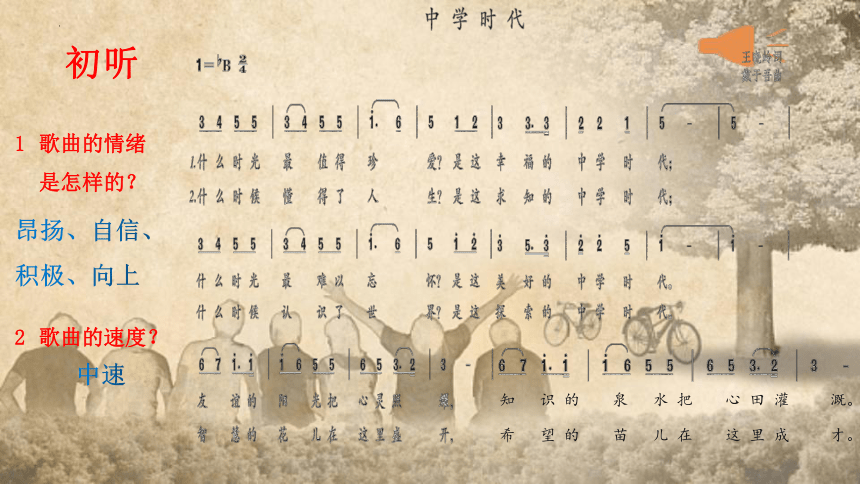 中学时代
初听
1=♭B 2/4
王晓岭词
戚于吾曲
1 歌曲的情绪
是怎样的？
昂扬、自信、
积极、向上
2 歌曲的速度？
中速
3 4 5 5 | 3 4 5 5 | i· 6 | 5 1 2 | 3 3· 3 | 2 2 1 | 5 - | 5 - |
1.什么时光 最 值得 珍 爱？是这 幸 福的 中学 时 代；
2.什么时候 懂 得了 人 生？是这 求 知的 中学 时 代；
3 4 5 5 | 3 4 5 5 | i· 6 | 5 i 2̇ | 3̇ 5̇· 3̇ | 2̇ 2̇ 5 | i - | i - |
什么时光 最 难以 忘 怀？是这 美 好的 中学 时 代。
什么时候 认 识了 世 界？是这 探 索的 中学 时 代。
6 7 i· i | i 6 5 5 | 6 5 3· 2 | 3 - | 6 7 i· i | i 6 5 5 | 6 5 3· 2 | 3 -
友 谊的 阳 光把 心灵照 耀， 知 识的 泉 水把 心田灌 溉。
智 慧的 花 儿在 这里盛 开， 希 望的 苗 儿在 这里成 才。